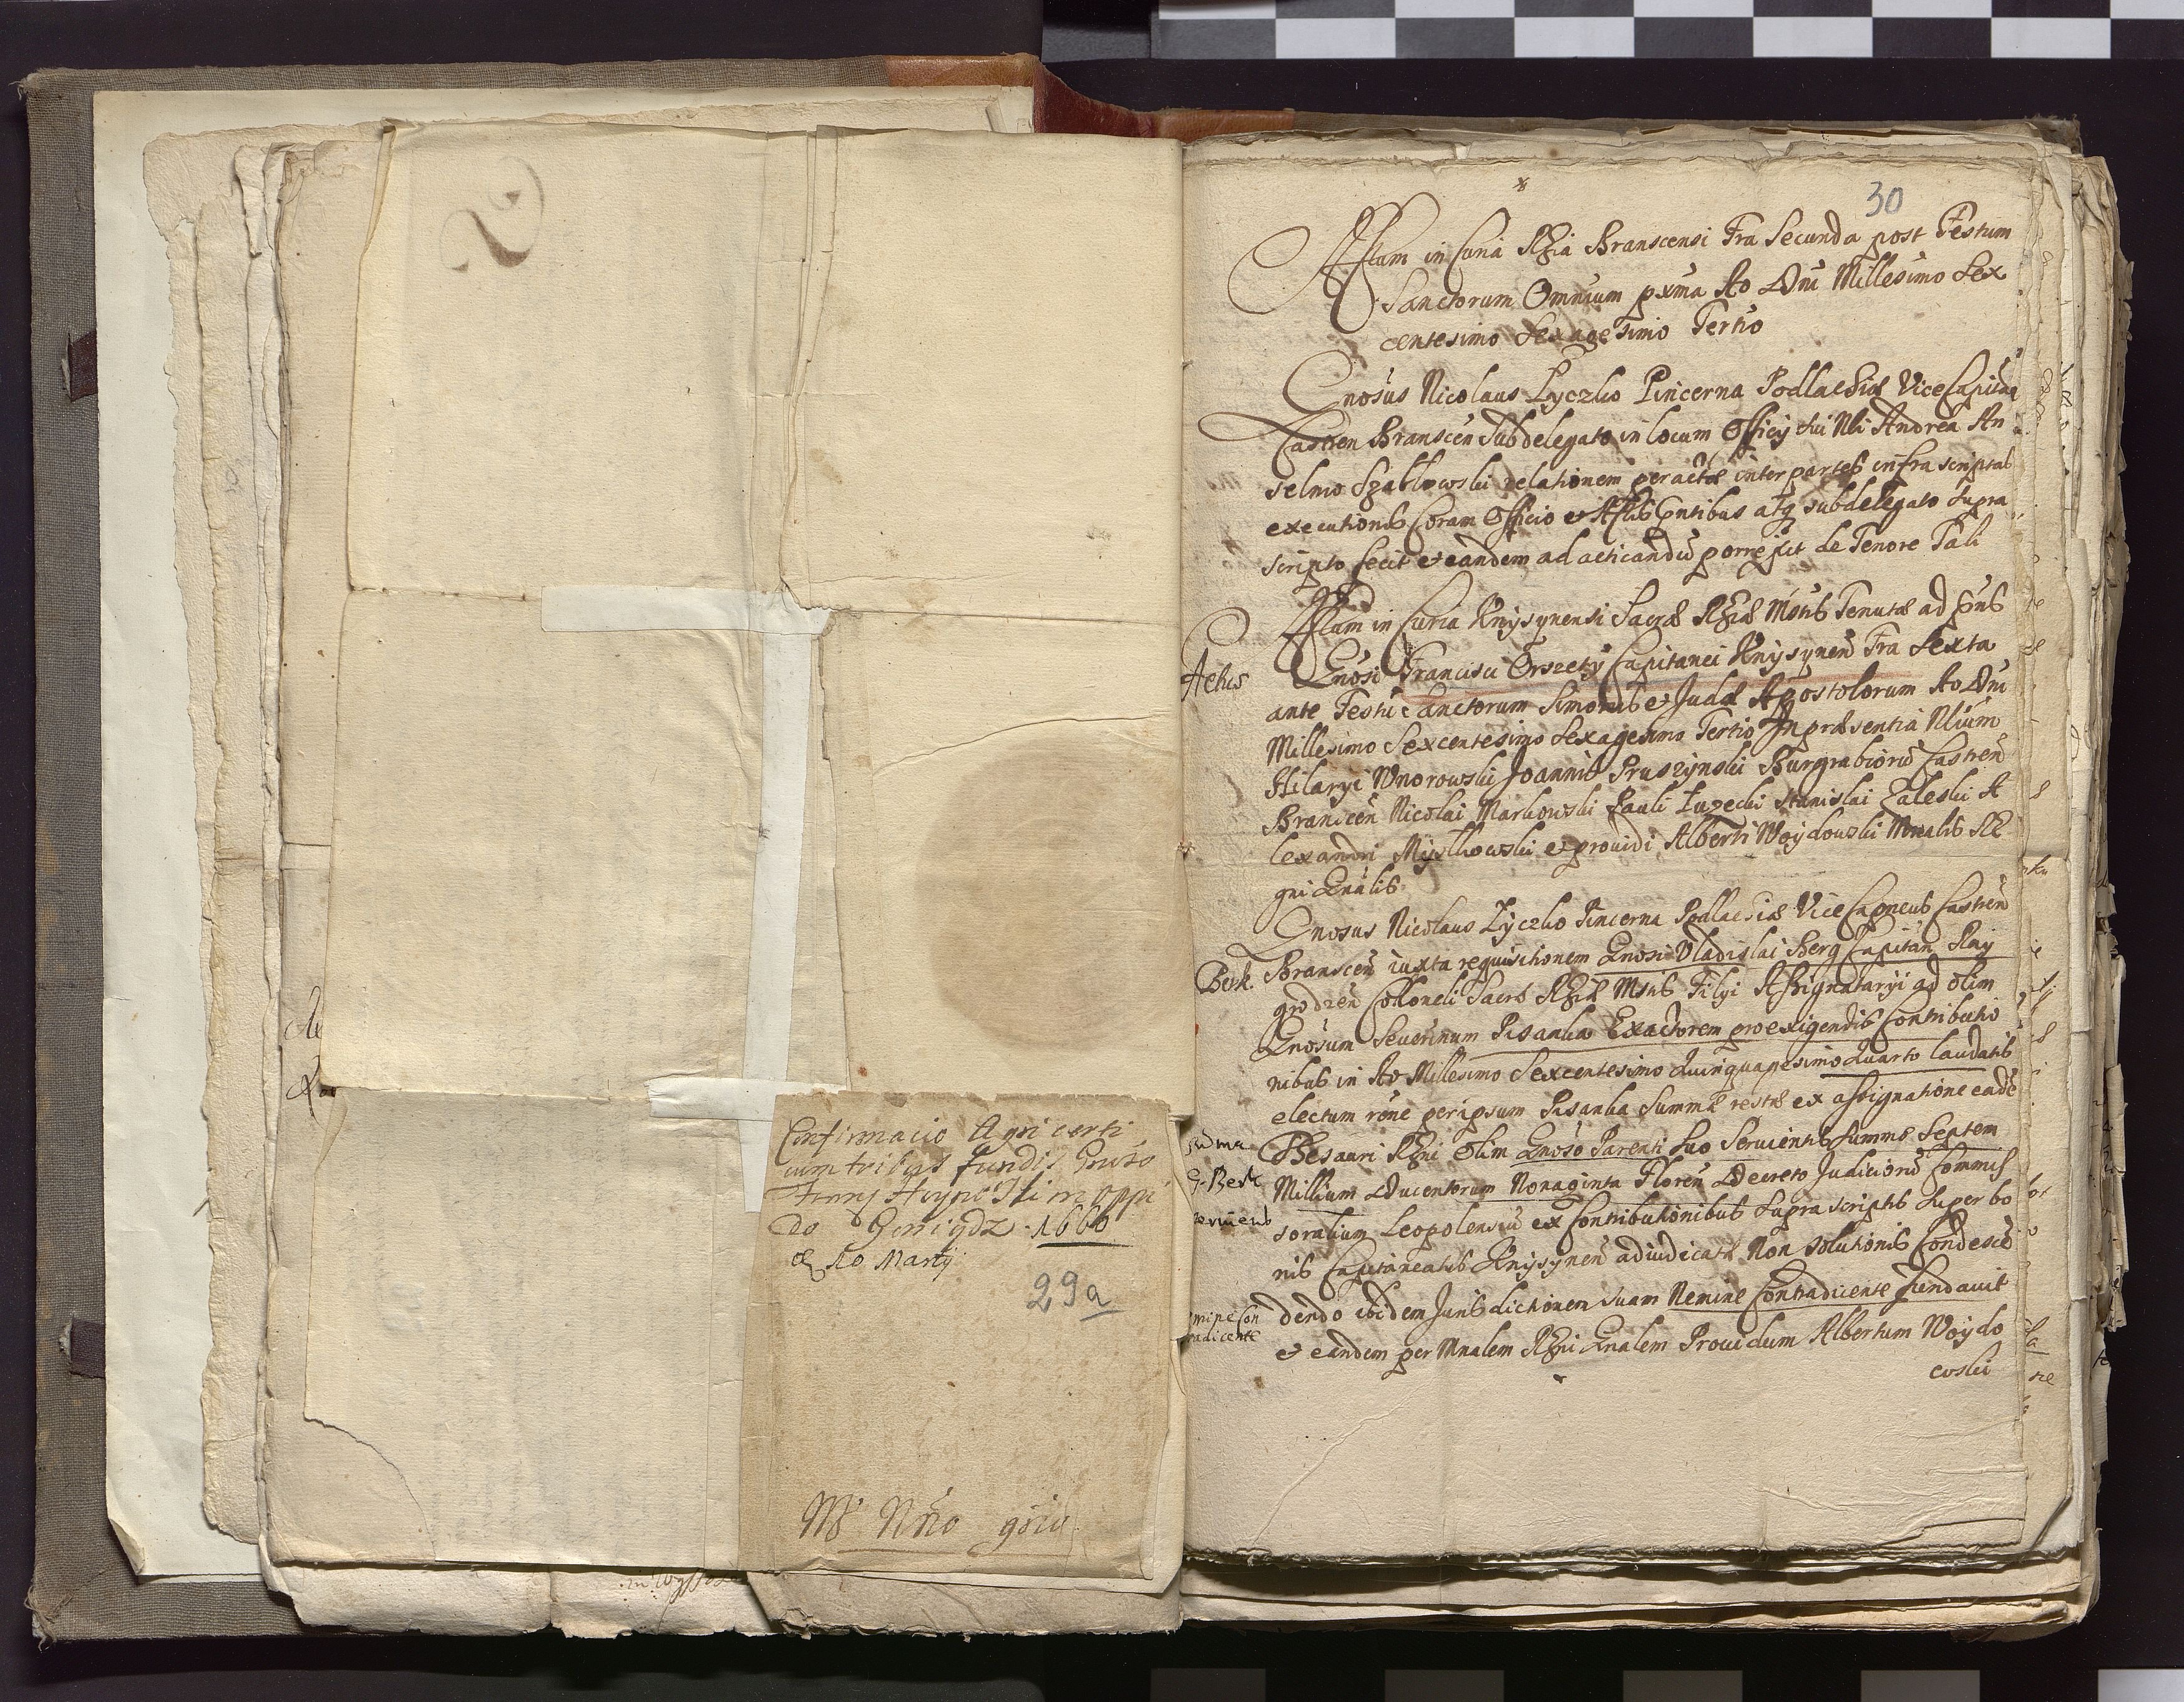 Confirmacio Agri certi
cum tribus fundis
in oppi
do Goniądz 1660
10 Martij
29a
30
Actum in Curia Rgia Branscensi Fra Secunda post Festum
Sanctorum Omnium pxma Ao Dni Millesimo Sex
centesimo Sexagesimo Tertio
Gnosus Nicolaus Łyczko Pincerna Podlachiæ ViceCapitan
Castren Branscen Subdelegato in locum Officij sui Nli Andrea An
selmo Szablowski relationem peractæ inter partes infra scriptas
executionis Coram Officio et Actis Pntibus atq subdelegato supra
scripto fecit et eandem ad acticandū porrexit de Tenore Tali
Actum in Curia Knyszynensi Sacræ Rgiæ Mtis Tenutæ ad pns
Actus
Gnosi Francisci Orsetij Capitanei Knyszynen Fra Sexta
ante Festū Sanctorum Simonis et Judæ Apostolorum Ao Dni
Millesimo Sexcentesimo Sexagesimo Tertio In præsentia Nlium
Hilaryi Wnorowski Joannis Pruszynski Burgrabiorū Castren
Branscen Nicolai Markowski Pauli Łuzecki Stanislai Zaleski A
lexandri Myslkowski et providi Alberti Woydowski Mnalis Re
gni Gnalis
Gnosus Nicolaus Łyczko Pincerna Podlachiæ ViceCapneus Castren
Berk.
Branscen iuxta requisitionem Gnosi Vladislai Berg Capitan Ray
grodzen Colloneli Sacræ Rgiæ Mtis Filyi Assignatarij ad olim
Gnosum Severinum Pisanka Exactorem pro exigendis Contributio
nibus in Ao Millesimo Sexcentesimo Quinquagesimo Quarto laudatis
electum rōne per ipsum Pisanka Summæ restæ ex assignatione eade
Thesauri Rgni olim Gnoso Parenti suo Servientis summæ Septem
G. Berk
Millium Ducentorum Nonaginta Floren Decreto Judiciorū Commis
servient
sorialium Leopoliensiū ex Contributionibus supra scriptis super bo
nis Capitaneatus Knyszynen adiudicatæ Non Solutionis Condescē
mine Con
radicente
dendo ibidem Jurisdictionem suam Nemine Contradicente fundavit
et eandem per Mnalem Rgni Gnalem Providum Albertum Woydo
wski